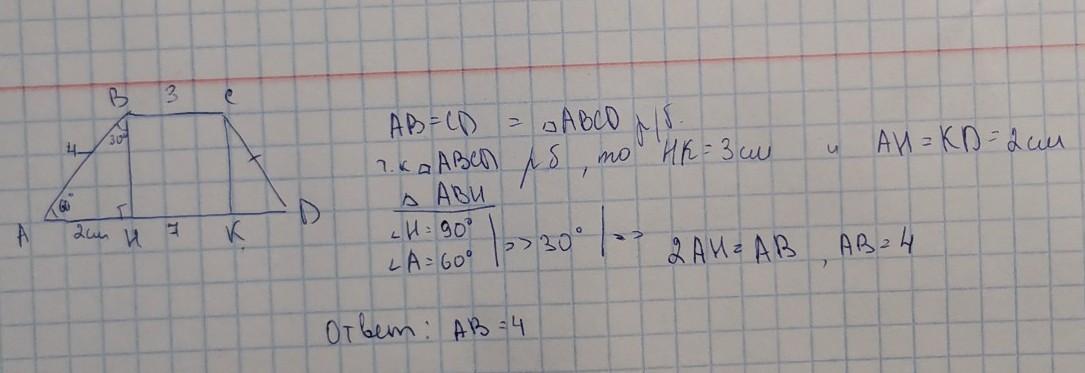 B 3 C
4
30°
60°
A 2см H 7 K D
AB=CD = ▱ABCD р/б.
т.к ▱ABCD р/б, то HK=3см и AH=KD=2см
△ ABH
∠H=90°
∠A=60°
=>30° => 2AH=AB, AB=4
Ответ: AB=4